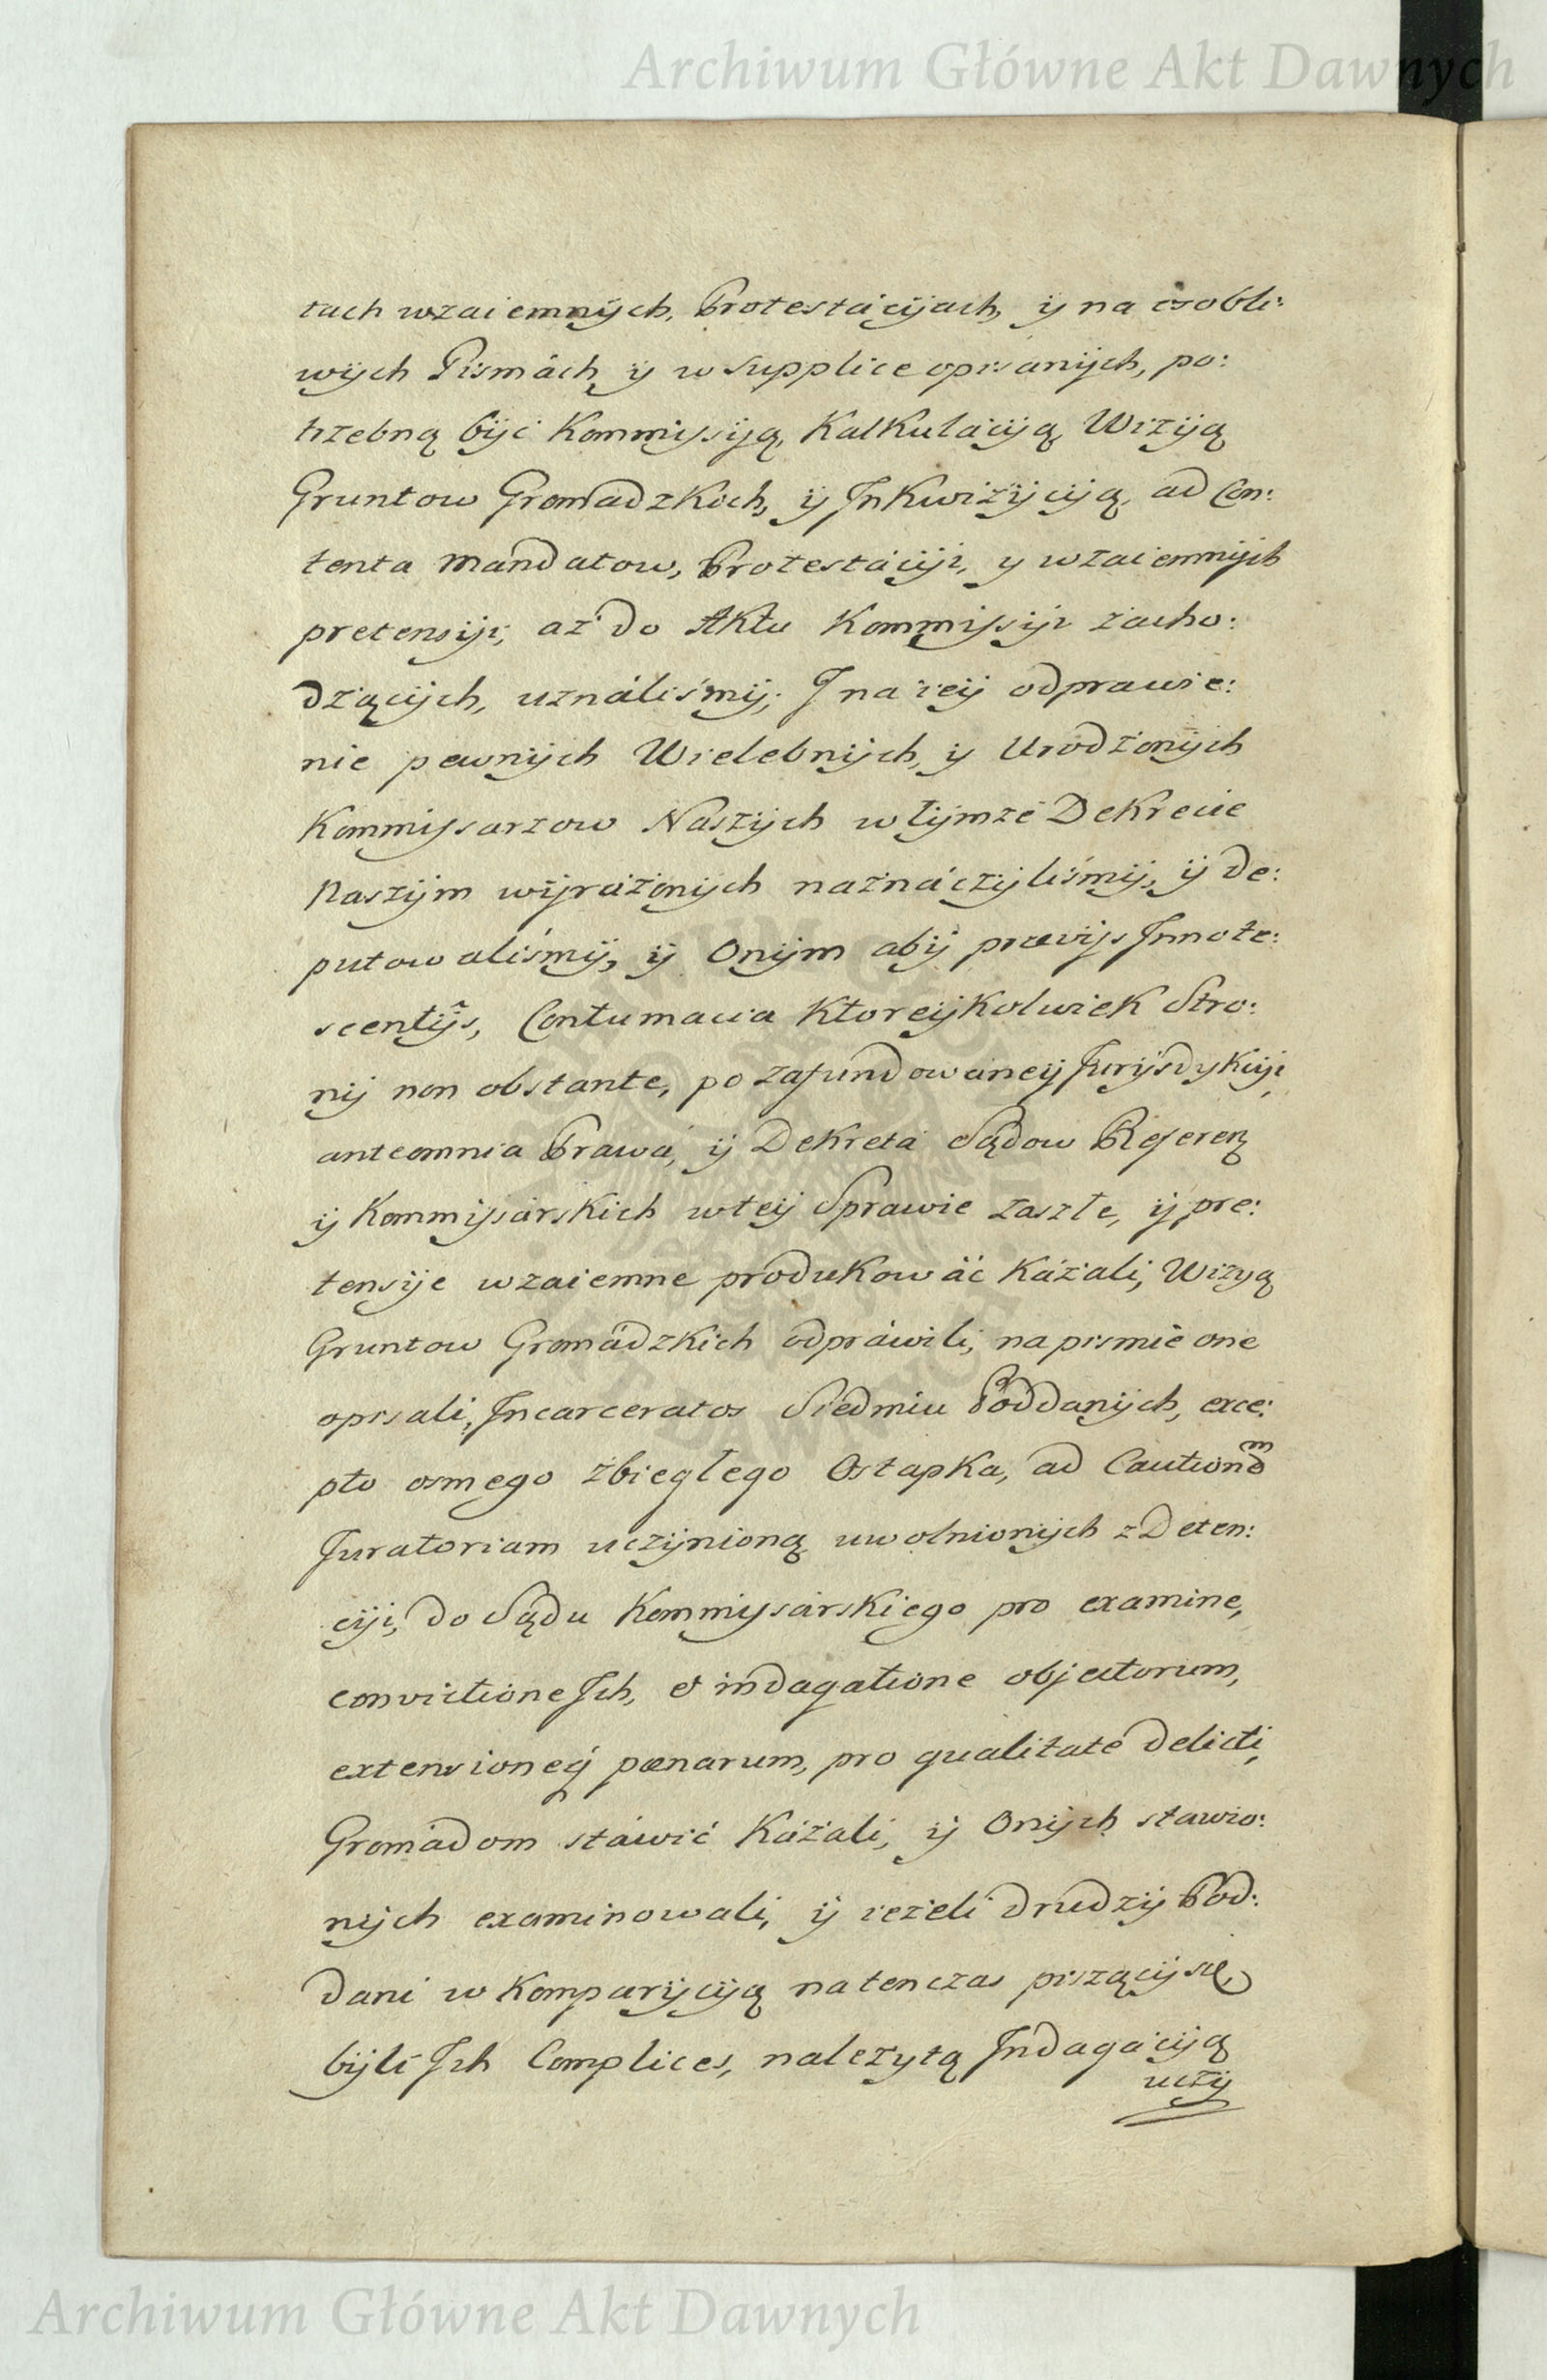 Archiwum Główne Akt Dawnych
tach wzaiemnÿch, Protestácÿiach, ÿ na osobli:
wÿch Pismách ÿ w Supplice opisanÿch, po:
trzebną bÿć Kommissÿią, Kalkulácÿią, Wizÿią
Gruntow Gromadzkich, ÿ Jnkwizÿcÿią, ad Con:
tenta Mandatow, Protestácÿi, y wzaiemnÿch
pretensÿi, aż do Aktu Kommissÿi zacho:
dzącÿch, uználiśmÿ; J na ieÿ odprawie:
nie pewnÿch Wielebnÿch, ÿ Urodzonÿch
Kommissarzow Naszÿch w tÿmże Dekrecie
Naszÿm wÿrażonÿch náznáczÿliśmÿ, ÿ de:
putowaliśmÿ, ÿ Onÿm abÿ prævÿs Jnnote:
scentÿs, Contumacia ktoreÿkolwiek Stro:
nÿ non obstante, po zafundowaneÿ Jurÿsdykcÿi,
anteomnia Prawa, ÿ Dekreta Sądow Referen:
ÿ Kommissárskich wteÿ Sprawie zaszłe, ÿ pre:
tensÿe wzaiemne produkowáć kázali, Wizyą
Gruntow Gromádzkich odpráwili, na pismie one
opisali, Jncarceratos Siedmiu Poddanÿch, exce:
pto osmego zbiegłego Ostapka, ad Caution̄e͞m
Juratoriam uczÿnioną uwolnionÿch z Deten:
cÿi, do Sądu Kommissárskiego pro examine,
convictione Jch, et indagatione objectorum,
extensioneq́ pœnarum, pro qualitate delicti,
Gromádom stáwić kázali, ÿ Onÿch stawio:
nÿch examinowali, ÿ ieżeli drudzÿ Pod:
dani w Komparÿcÿią natenczas piszącÿ się,
bÿli Jch Complices, należytą Jndagácÿią
uczÿ
Archiwum Główne Akt Dawnych